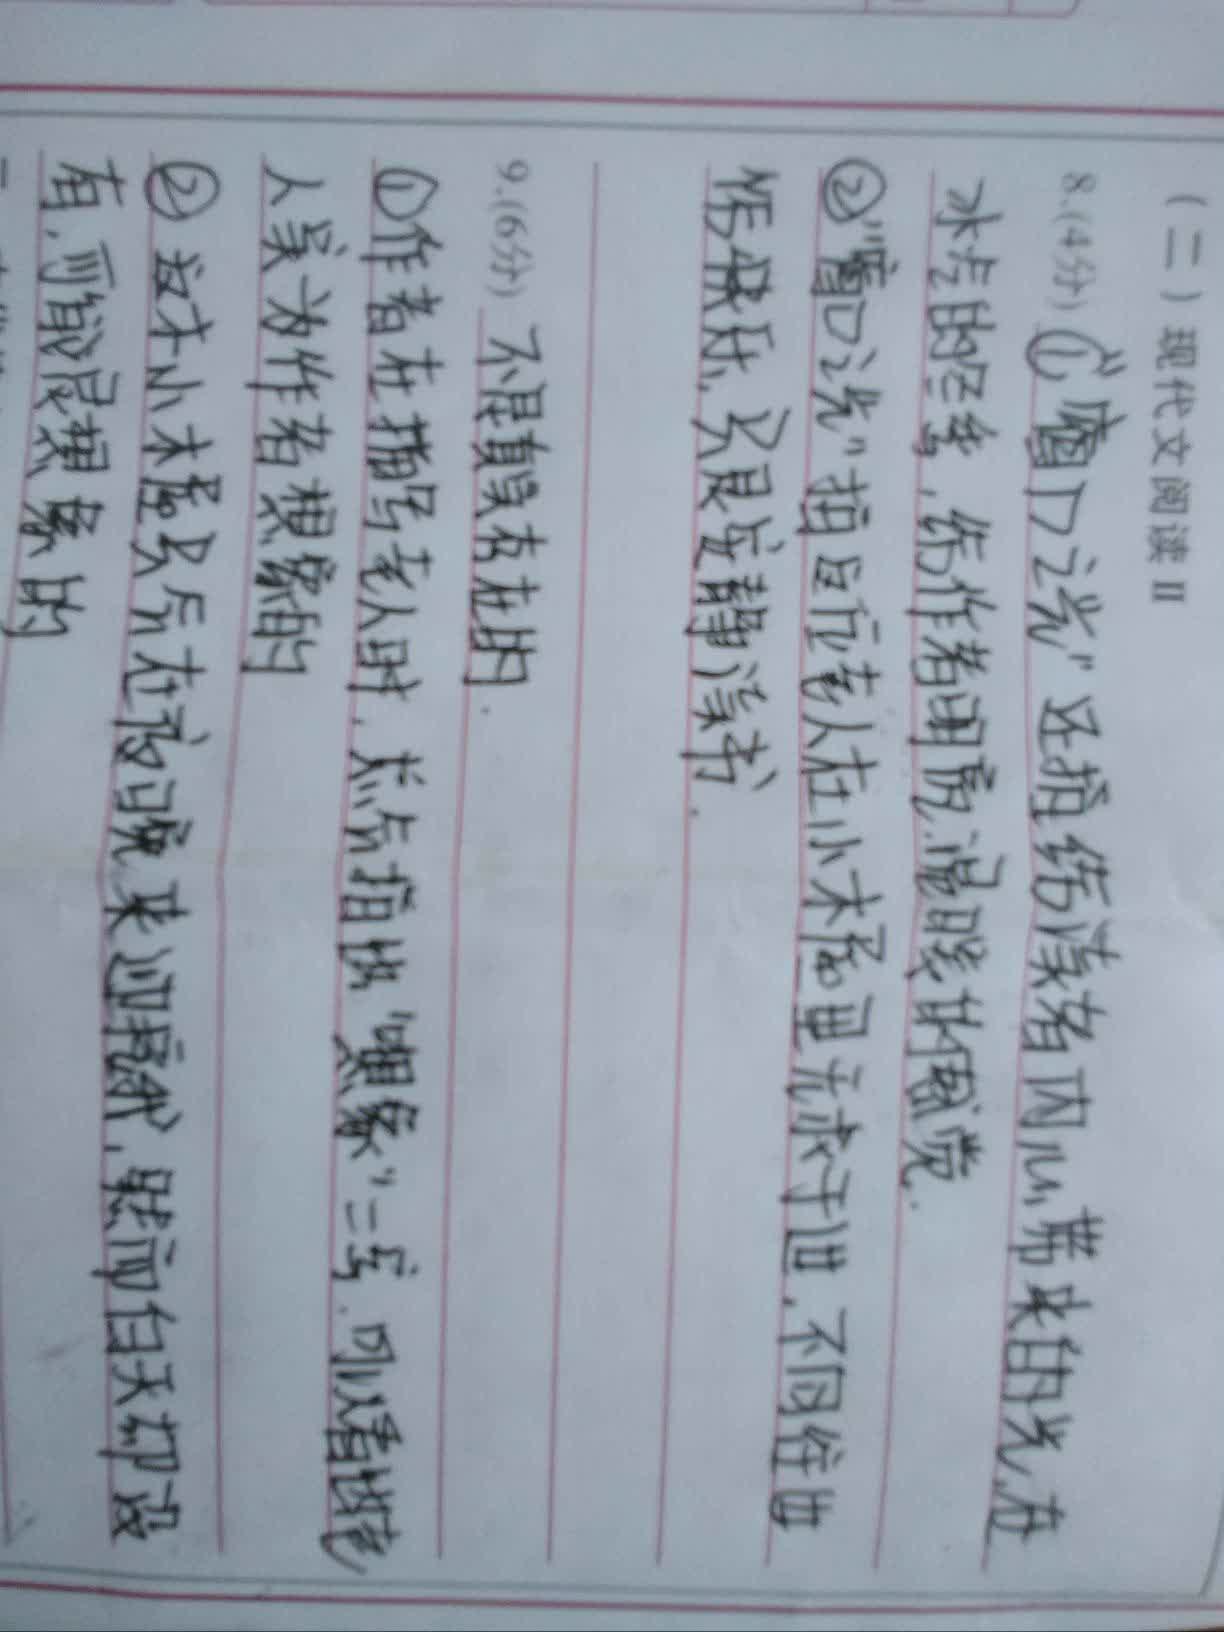 （二）现代文阅读Ⅱ
8.(4分)①"窗口之光"还指给读者内心带来的光,在
冰冷的冬,给作者明亮、温暖的感觉.
②"窗口之光"指反应老人在小木屋里无求于世,不问往世
俗快乐,只是安静读书.
9.(6分) 不是真实存在的.
①作者在描写老人时,点指出"想象"二字,可以看出老
人实为作者想象的
②这木小木屋只在夜晚来迎接我,然而白天却没
有,可能是想象的